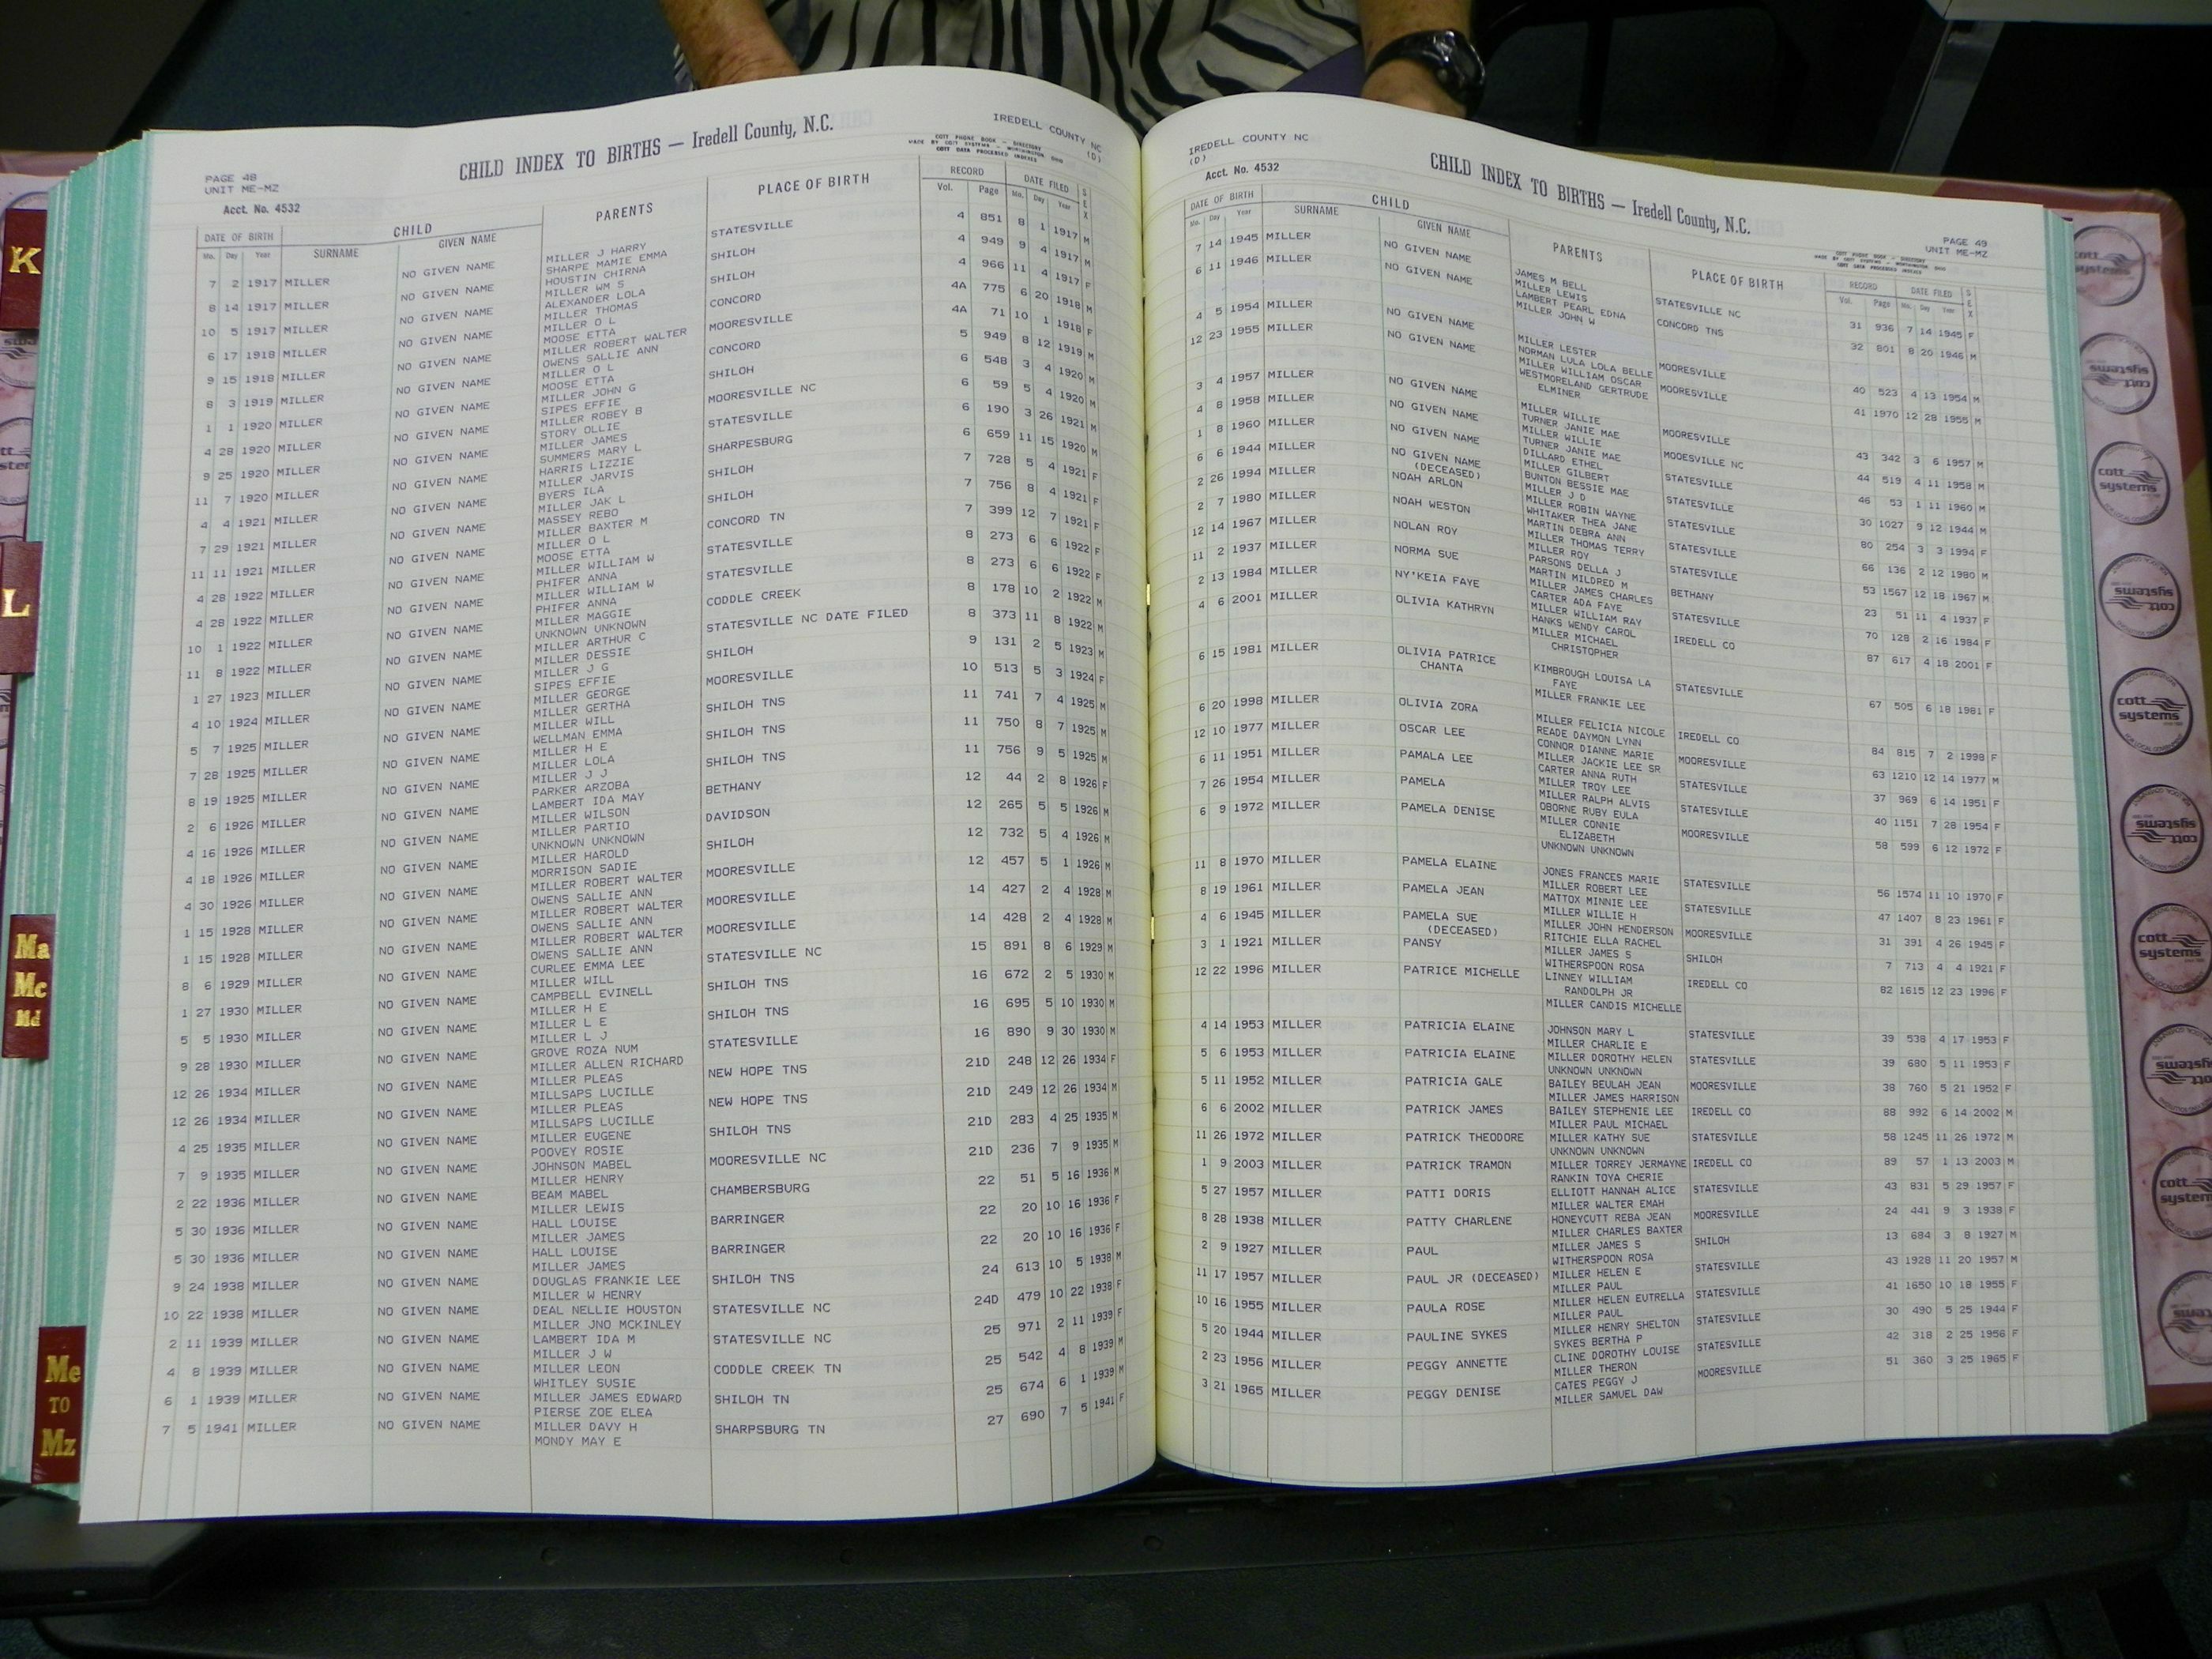 CHILD INDEX TO BIRTHS — Iredell County, N.C.
IREDELL COUNTY NC
(D)
COTT PHONE BOOK - DIRECTORY
MADE BY COTT SYSTEMS - WORTHINGTON OHIO
COTT DATA PROCESSED INDEXES
PAGE 48
UNIT ME-MZ
Acct. No. 4532
DATE OF BIRTH CHILD PARENTS PLACE OF BIRTH RECORD DATE FILED SEX
Mo. Day Year SURNAME GIVEN NAME Vol. Page Mo. Day Year
7 2 1917 MILLER NO GIVEN NAME MILLER J HARRY STATESVILLE 4 851 8 1 1917 M
SHARPE MAMIE EMMA
8 14 1917 MILLER NO GIVEN NAME HOUSTIN CHIRNA SHILOH 4 949 9 4 1917 M
MILLER WM S
10 5 1917 MILLER NO GIVEN NAME ALEXANDER LOLA SHILOH 4 966 11 4 1917 F
MILLER THOMAS
6 17 1918 MILLER NO GIVEN NAME MILLER O L CONCORD 4A 775 6 20 1918 M
MOOSE ETTA
9 15 1918 MILLER NO GIVEN NAME MILLER ROBERT WALTER MOORESVILLE 4A 71 10 1 1918 F
OWENS SALLIE ANN
8 3 1919 MILLER NO GIVEN NAME MILLER O L CONCORD 5 949 8 12 1919 M
MOOSE ETTA
1 1 1920 MILLER NO GIVEN NAME MILLER JOHN G SHILOH 6 548 3 4 1920 M
SIPES EFFIE
4 28 1920 MILLER NO GIVEN NAME MILLER ROBEY B MOORESVILLE NC 6 59 5 4 1920 M
STORY OLLIE
9 25 1920 MILLER NO GIVEN NAME MILLER JAMES STATESVILLE 6 190 3 26 1921 M
SUMMERS MARY L
11 7 1920 MILLER NO GIVEN NAME HARRIS LIZZIE SHARPESBURG 6 659 11 15 1920 M
MILLER JARVIS
4 4 1921 MILLER NO GIVEN NAME BYERS ILA SHILOH 7 728 5 4 1921 F
MILLER JAK L
7 29 1921 MILLER NO GIVEN NAME MASSEY REBO SHILOH 7 756 8 4 1921 F
MILLER BAXTER M
11 11 1921 MILLER NO GIVEN NAME MILLER O L CONCORD TN 7 399 12 7 1921 F
MOOSE ETTA
4 28 1922 MILLER NO GIVEN NAME MILLER WILLIAM W STATESVILLE 8 273 6 6 1922 F
PHIFER ANNA
4 28 1922 MILLER NO GIVEN NAME MILLER WILLIAM W STATESVILLE 8 273 6 6 1922 F
PHIFER ANNA
10 1 1922 MILLER NO GIVEN NAME MILLER MAGGIE CODDLE CREEK 8 178 10 2 1922 M
UNKNOWN UNKNOWN
11 8 1922 MILLER NO GIVEN NAME MILLER ARTHUR C STATESVILLE NC DATE FILED 8 373 11 8 1922 M
MILLER DESSIE
1 27 1923 MILLER NO GIVEN NAME MILLER J G SHILOH 9 131 2 5 1923 M
SIPES EFFIE
4 10 1924 MILLER NO GIVEN NAME MILLER GEORGE MOORESVILLE 10 513 5 3 1924 F
MILLER GERTHA
5 7 1925 MILLER NO GIVEN NAME MILLER WILL SHILOH TNS 11 741 7 4 1925 M
WELLMAN EMMA
7 28 1925 MILLER NO GIVEN NAME MILLER H E SHILOH TNS 11 750 8 7 1925 M
MILLER LOLA
8 19 1925 MILLER NO GIVEN NAME MILLER J J SHILOH TNS 11 756 9 5 1925 M
PARKER ARZOBA
2 6 1926 MILLER NO GIVEN NAME LAMBERT IDA MAY BETHANY 12 44 2 8 1926 F
MILLER WILSON
4 16 1926 MILLER NO GIVEN NAME MILLER PARTIO DAVIDSON 12 265 5 5 1926 M
UNKNOWN UNKNOWN
4 18 1926 MILLER NO GIVEN NAME MILLER HAROLD SHILOH 12 732 5 4 1926 M
MORRISON SADIE
4 30 1926 MILLER NO GIVEN NAME MILLER ROBERT WALTER MOORESVILLE 12 457 5 1 1926 M
OWENS SALLIE ANN
1 15 1928 MILLER NO GIVEN NAME MILLER ROBERT WALTER MOORESVILLE 14 427 2 4 1928 M
OWENS SALLIE ANN
1 15 1928 MILLER NO GIVEN NAME MILLER ROBERT WALTER MOORESVILLE 14 428 2 4 1928 M
OWENS SALLIE ANN
8 6 1929 MILLER NO GIVEN NAME CURLEE EMMA LEE STATESVILLE NC 15 891 8 6 1929 M
MILLER WILL
1 27 1930 MILLER NO GIVEN NAME CAMPBELL EVINELL SHILOH TNS 16 672 2 5 1930 M
MILLER H E
5 5 1930 MILLER NO GIVEN NAME MILLER L E SHILOH TNS 16 695 5 10 1930 M
MILLER L J
9 28 1930 MILLER NO GIVEN NAME GROVE ROZA NUM STATESVILLE 16 890 9 30 1930 M
MILLER ALLEN RICHARD
12 26 1934 MILLER NO GIVEN NAME MILLER PLEAS NEW HOPE TNS 21D 248 12 26 1934 F
MILLSAPS LUCILLE
12 26 1934 MILLER NO GIVEN NAME MILLER PLEAS NEW HOPE TNS 21D 249 12 26 1934 M
MILLSAPS LUCILLE
4 25 1935 MILLER NO GIVEN NAME MILLER EUGENE SHILOH TNS 21D 283 4 25 1935 M
POOVEY ROSIE
7 9 1935 MILLER NO GIVEN NAME JOHNSON MABEL MOORESVILLE NC 21D 236 7 9 1935 M
MILLER HENRY
2 22 1936 MILLER NO GIVEN NAME BEAM MABEL CHAMBERSBURG 22 51 5 16 1936 M
MILLER LEWIS
5 30 1936 MILLER NO GIVEN NAME HALL LOUISE BARRINGER 22 20 10 16 1936 F
MILLER JAMES
5 30 1936 MILLER NO GIVEN NAME HALL LOUISE BARRINGER 22 20 10 16 1936 F
MILLER JAMES
9 24 1938 MILLER NO GIVEN NAME DOUGLAS FRANKIE LEE SHILOH TNS 24 613 10 5 1938 M
MILLER W HENRY
10 22 1938 MILLER NO GIVEN NAME DEAL NELLIE HOUSTON STATESVILLE NC 24D 479 10 22 1938 F
MILLER JNO MCKINLEY
2 11 1939 MILLER NO GIVEN NAME LAMBERT IDA M STATESVILLE NC 25 971 2 11 1939 F
MILLER J W
4 8 1939 MILLER NO GIVEN NAME MILLER LEON CODDLE CREEK TN 25 542 4 8 1939 M
WHITLEY SUSIE
6 1 1939 MILLER NO GIVEN NAME MILLER JAMES EDWARD SHILOH TN 25 674 6 1 1939 M
PIERSE ZOE ELEA
7 5 1941 MILLER NO GIVEN NAME MILLER DAVY H SHARPSBURG TN 27 690 7 5 1941 F
MONDY MAY E
IREDELL COUNTY NC
(D)
Acct. No. 4532
CHILD INDEX TO BIRTHS — Iredell County, N.C.
PAGE 49
UNIT ME-MZ
COTT PHONE BOOK - DIRECTORY
MADE BY COTT SYSTEMS - WORTHINGTON OHIO
COTT DATA PROCESSED INDEXES
DATE OF BIRTH CHILD PARENTS PLACE OF BIRTH RECORD DATE FILED SEX
Mo. Day Year SURNAME GIVEN NAME Vol. Page Mo. Day Year
7 14 1945 MILLER NO GIVEN NAME JAMES M BELL STATESVILLE NC 31 936 7 14 1945 F
MILLER LEWIS
6 11 1946 MILLER NO GIVEN NAME LAMBERT PEARL EDNA CONCORD TNS 32 801 8 20 1946 M
MILLER JOHN W
4 5 1954 MILLER NO GIVEN NAME MILLER LESTER MOORESVILLE 40 523 4 13 1954 M
NORMAN LULA LOLA BELLE
12 23 1955 MILLER NO GIVEN NAME MILLER WILLIAM OSCAR MOORESVILLE 41 1970 12 28 1955 M
WESTMORELAND GERTRUDE
ELMINER
3 4 1957 MILLER NO GIVEN NAME MILLER WILLIE MOORESVILLE 43 342 3 6 1957 M
TURNER JANIE MAE
4 8 1958 MILLER NO GIVEN NAME MILLER WILLIE MOOESVILLE NC 44 519 4 11 1958 M
TURNER JANIE MAE
1 8 1960 MILLER NO GIVEN NAME DILLARD ETHEL STATESVILLE 46 53 1 11 1960 M
MILLER GILBERT
6 6 1944 MILLER NO GIVEN NAME BUNTON BESSIE MAE STATESVILLE 30 1027 9 12 1944 M
(DECEASED) MILLER J D
2 26 1994 MILLER NOAH ARLON MILLER ROBIN WAYNE STATESVILLE 80 254 3 3 1994 F
WHITAKER THEA JANE
2 7 1980 MILLER NOAH WESTON MARTIN DEBRA ANN STATESVILLE 66 136 2 12 1980 M
MILLER THOMAS TERRY
12 14 1967 MILLER NOLAN ROY MILLER ROY BETHANY 53 1567 12 18 1967 M
PARSONS DELLA J
11 2 1937 MILLER NORMA SUE MARTIN MILDRED M STATESVILLE 23 51 11 4 1937 F
MILLER JAMES CHARLES
2 13 1984 MILLER NY'KEIA FAYE CARTER ADA FAYE IREDELL CO 70 128 2 16 1984 F
MILLER WILLIAM RAY
4 6 2001 MILLER OLIVIA KATHRYN HANKS WENDY CAROL 87 617 4 18 2001 F
MILLER MICHAEL
CHRISTOPHER
6 15 1981 MILLER OLIVIA PATRICE KIMBROUGH LOUISA LA STATESVILLE 67 505 6 18 1981 F
CHANTA FAYE
MILLER FRANKIE LEE
6 20 1998 MILLER OLIVIA ZORA MILLER FELICIA NICOLE IREDELL CO 84 815 7 2 1998 F
READE DAYMON LYNN
12 10 1977 MILLER OSCAR LEE CONNOR DIANNE MARIE MOORESVILLE 63 1210 12 14 1977 M
MILLER JACKIE LEE SR
6 11 1951 MILLER PAMALA LEE CARTER ANNA RUTH STATESVILLE 37 969 6 14 1951 F
MILLER TROY LEE
7 26 1954 MILLER PAMELA MILLER RALPH ALVIS STATESVILLE 40 1151 7 28 1954 F
OBORNE RUBY EULA
6 9 1972 MILLER PAMELA DENISE MILLER CONNIE MOORESVILLE 58 599 6 12 1972 F
ELIZABETH
UNKNOWN UNKNOWN
11 8 1970 MILLER PAMELA ELAINE JONES FRANCES MARIE STATESVILLE 56 1574 11 10 1970 F
MILLER ROBERT LEE
8 19 1961 MILLER PAMELA JEAN MATTOX MINNIE LEE STATESVILLE 47 1407 8 23 1961 F
MILLER WILLIE H
4 6 1945 MILLER PAMELA SUE MILLER JOHN HENDERSON MOORESVILLE 31 391 4 26 1945 F
(DECEASED) RITCHIE ELLA RACHEL
3 1 1921 MILLER PANSY MILLER JAMES S SHILOH 7 713 4 4 1921 F
WITHERSPOON ROSA
12 22 1996 MILLER PATRICE MICHELLE LINNEY WILLIAM IREDELL CO 82 1615 12 23 1996 F
RANDOLPH JR
MILLER CANDIS MICHELLE
4 14 1953 MILLER PATRICIA ELAINE JOHNSON MARY L STATESVILLE 39 538 4 17 1953 F
MILLER CHARLIE E
5 6 1953 MILLER PATRICIA ELAINE MILLER DOROTHY HELEN STATESVILLE 39 680 5 11 1953 F
UNKNOWN UNKNOWN
5 11 1952 MILLER PATRICIA GALE BAILEY BEULAH JEAN MOORESVILLE 38 760 5 21 1952 F
MILLER JAMES HARRISON
6 6 2002 MILLER PATRICK JAMES BAILEY STEPHENIE LEE IREDELL CO 88 992 6 14 2002 M
MILLER PAUL MICHAEL
11 26 1972 MILLER PATRICK THEODORE MILLER KATHY SUE STATESVILLE 58 1245 11 26 1972 M
UNKNOWN UNKNOWN
1 9 2003 MILLER PATRICK TRAMON MILLER TORREY JERMAYNE IREDELL CO 89 57 1 13 2003 M
RANKIN TOYA CHERIE
5 27 1957 MILLER PATTI DORIS ELLIOTT HANNAH ALICE STATESVILLE 43 831 5 29 1957 F
MILLER WALTER EMAH
8 28 1938 MILLER PATTY CHARLENE HONEYCUTT REBA JEAN MOORESVILLE 24 441 9 3 1938 F
MILLER CHARLES BAXTER
2 9 1927 MILLER PAUL MILLER JAMES S SHILOH 13 684 3 8 1927 M
WITHERSPOON ROSA
11 17 1957 MILLER PAUL JR (DECEASED) MILLER HELEN E STATESVILLE 43 1928 11 20 1957 M
MILLER PAUL
10 16 1955 MILLER PAULA ROSE MILLER HELEN EUTRELLA STATESVILLE 41 1650 10 18 1955 F
MILLER PAUL
5 20 1944 MILLER PAULINE SYKES MILLER HENRY SHELTON STATESVILLE 30 490 5 25 1944 F
SYKES BERTHA P
2 23 1956 MILLER PEGGY ANNETTE CLINE DOROTHY LOUISE STATESVILLE 42 318 2 25 1956 F
MILLER THERON
3 21 1965 MILLER PEGGY DENISE CATES PEGGY J MOORESVILLE 51 360 3 25 1965 F
MILLER SAMUEL DAW
K
L
Ma
Mc
Md
Me
TO
Mz
cott
systems
cott
systems
cott
systems
cott
systems
cott
systems